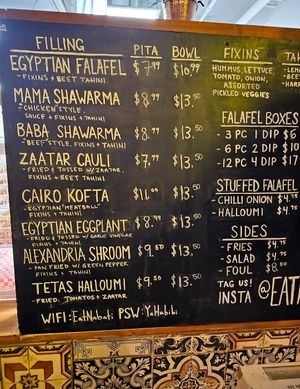 FILLING PITA BOWL
EGYPTIAN FALAFEL $7.99 $10.99
- FIXINS + BEET TAHINI
MAMA SHAWARMA $8.99 $13.50
- CHICKEN STYLE,
SAUCE + FIXINS + TAHINI
BABA SHAWARMA $8.99 $13.50
- "BEEF" STYLE, FIXINS + TAHINI
ZAATAR CAULI $7.99 $13.50
- FRIED + TOSSED W/ ZAATAR,
FIXINS + BEET TAHINI
CAIRO KOFTA $11.00 $13.50
- EGYPTIAN "MEATBALL"
FIXINS + TAHINI
EGYPTIAN EGGPLANT $8.99 $13.50
- FRIED + TOSSED W/ GARLIC VINEGAR
FIXINS + TAHINI
ALEXANDRIA SHROOM $9.50 $13.50
- PAN FRIED W/ GREEN PEPPER
FIXINS + TAHINI
TETAS HALLOUMI $9.50 $13.50
- FRIED, TOMATOS + ZAATAR
WIFI: EatNabati PSW: YaHabibi
FIXINS
HUMMUS, LETTUCE,
TOMATO, ONION,
ASSORTED
PICKLED VEGGIES
FALAFEL BOXES
- 3 PC 1 DIP $6
- 6 PC 2 DIP $10
- 12 PC 4 DIP $17
STUFFED FALAFEL
- CHILI ONION $4.75
- HALLOUMI $4.75
SIDES
- FRIES $4.75
- SALAD $4.75
- FOUL $8.50
TAG US!
INSTA @EATA